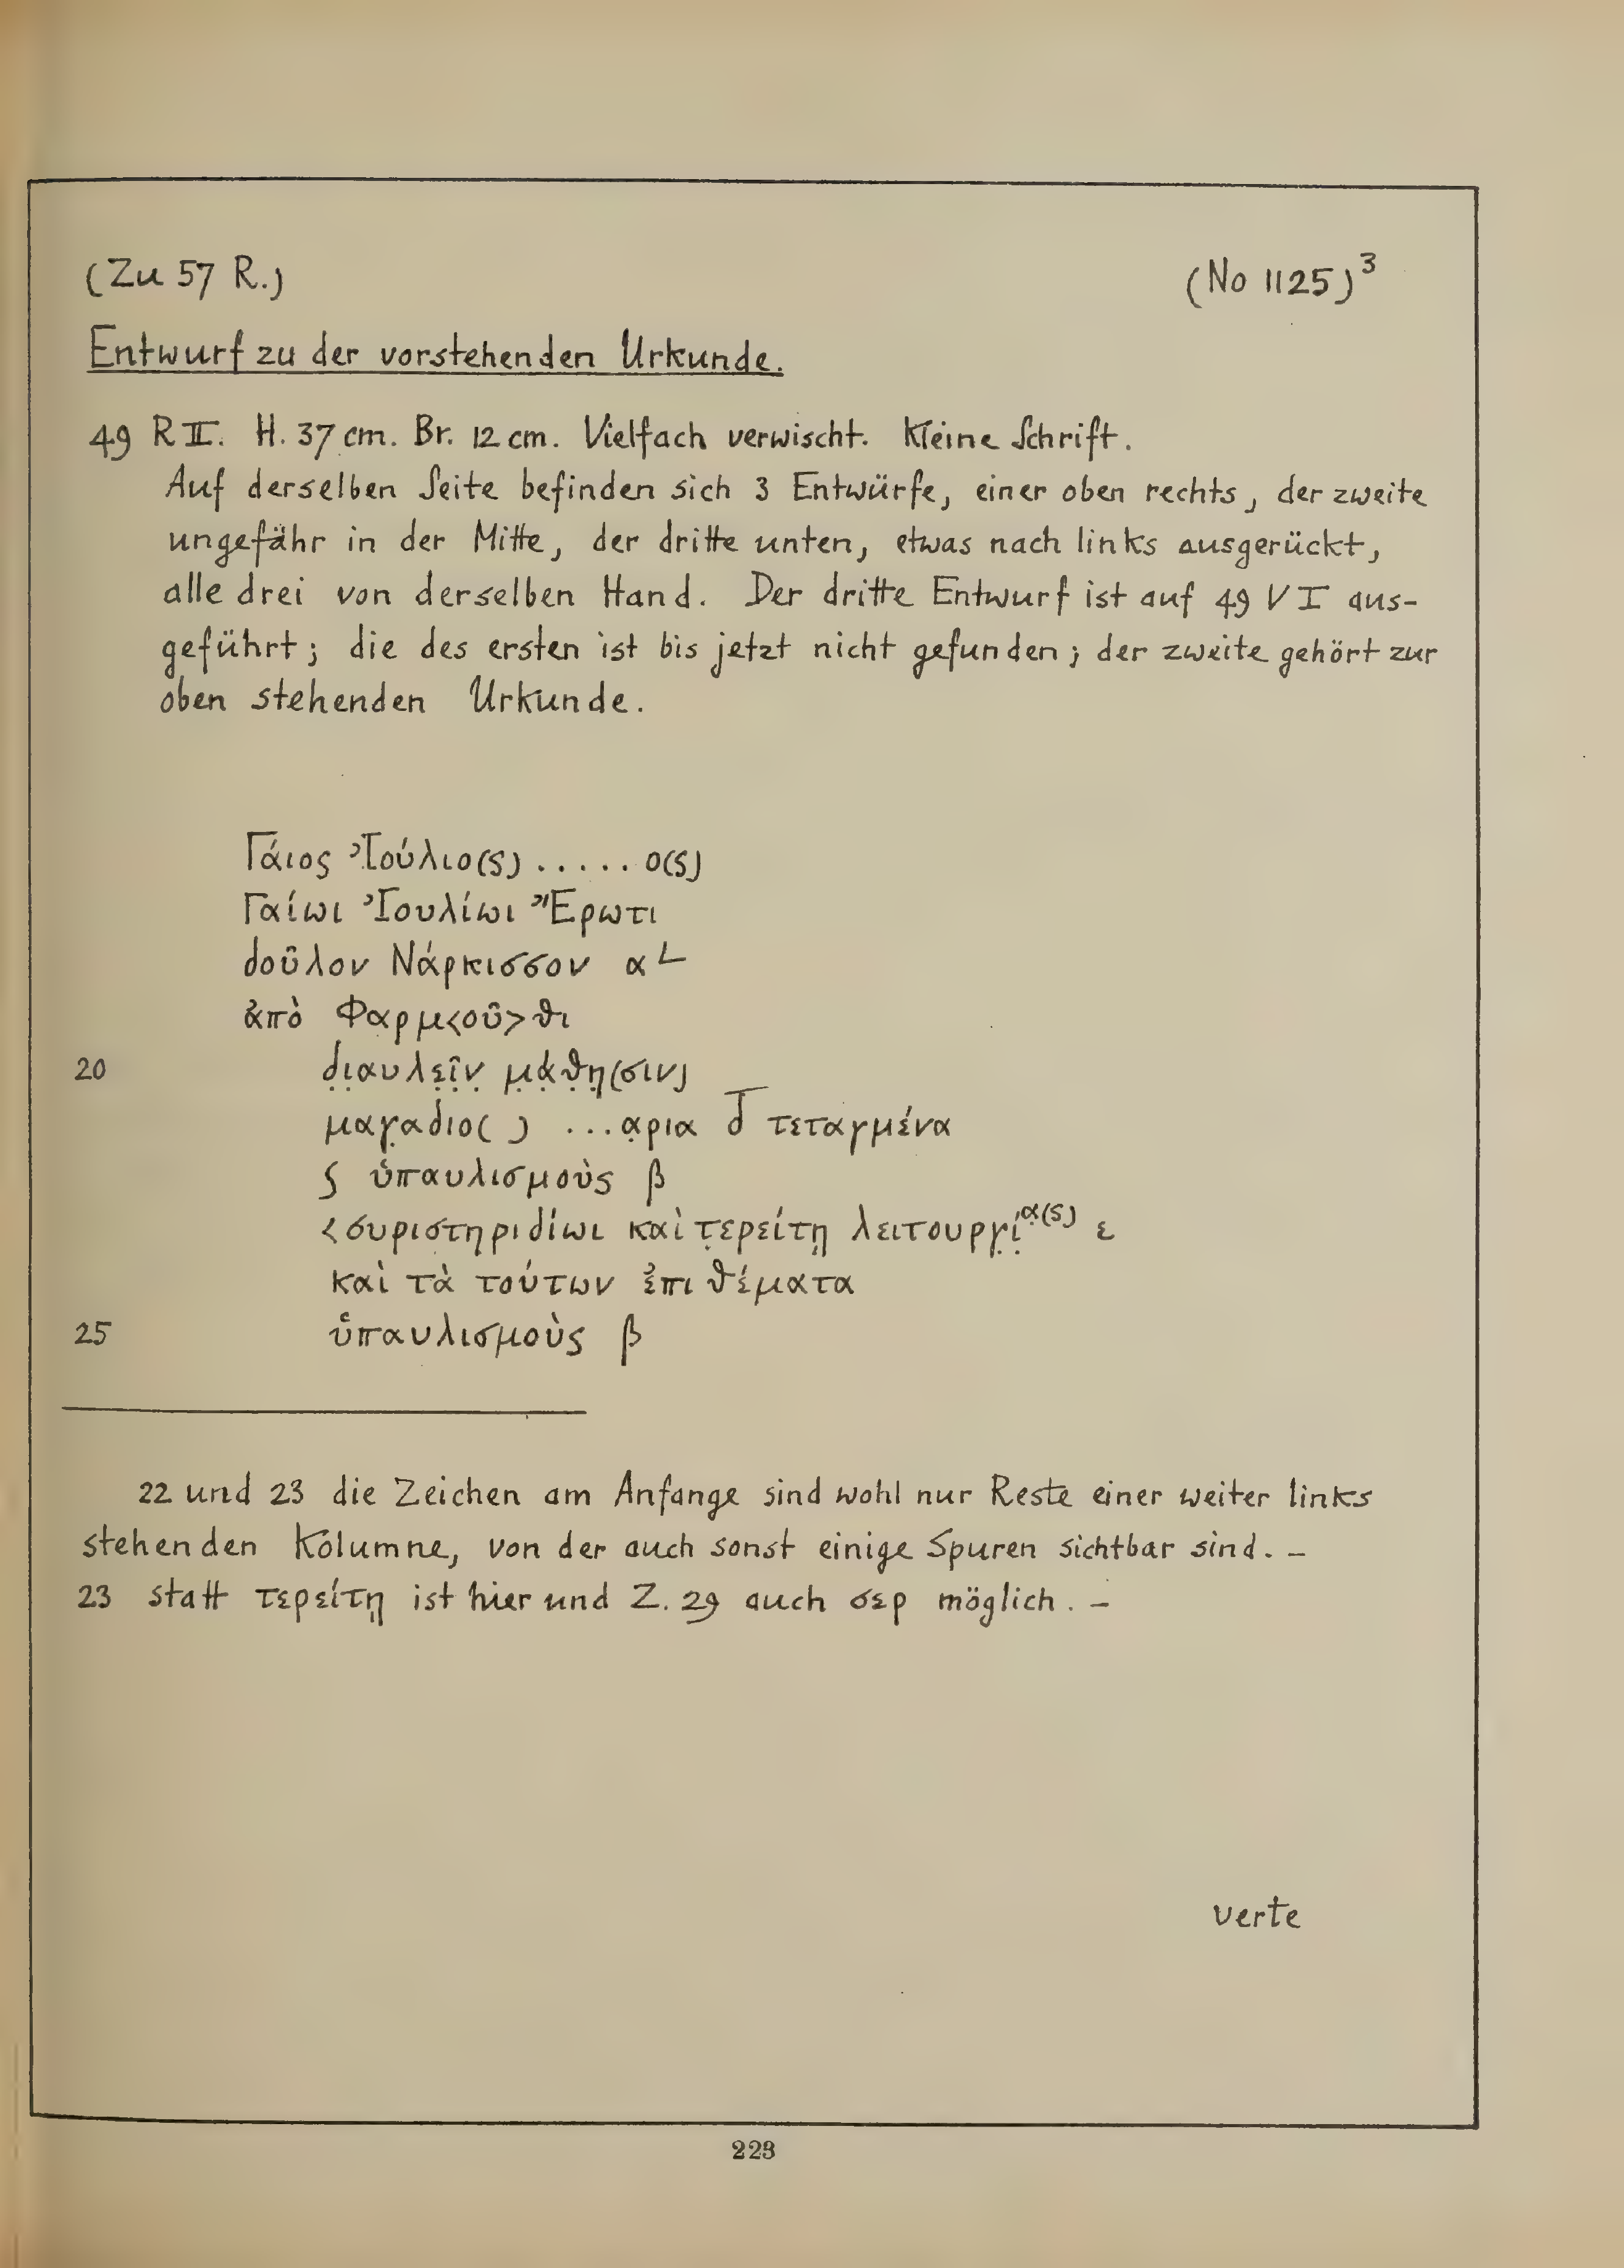 (Zu 57 R.) (No 1125)³
Entwurf zu der vorstehenden Urkunde.
49 R II. H. 37 cm. Br. 12 cm. Vielfach verwischt. Kleine Schrift.
Auf derselben Seite befinden sich 3 Entwürfe, einer oben rechts, der zweite
ungefähr in der Mitte, der dritte unten, etwas nach links ausgerückt,
alle drei von derselben Hand. Der dritte Entwurf ist auf 49 V I aus-
geführt; die des ersten ist bis jetzt nicht gefunden; der zweite gehört zur
oben stehenden Urkunde.
Γάιος Ἰούλιο(ς) ..... ο(ς)
Γαίωι Ἰουλίωι Ἔρωτι
δοῦλον Νάρκισσον α ∟
ἀπὸ Φαρμ<οῦ>θι
20 δ̣ι̣αυλε̣ῖ̣ν̣ μ̣ά̣θ̣η̣(σιν)
μαγ̣αδιο( ) ...α̣ρια δ̅ τεταγμένα
ς ὑπαυλισμοὺς β
<συριστηριδίωι καὶ τ̣ερείτῃ λειτουργ̣ί̣α̣(ς) ε
καὶ τὰ τούτων ἐπιθέματα
25 ὑπαυλισμοὺς β
22 und 23 die Zeichen am Anfange sind wohl nur Reste einer weiter links
stehenden Kolumne, von der auch sonst einige Spuren sichtbar sind. –
23 statt τερείτῃ ist hier und Z. 29 auch σερ möglich. –
verte
223